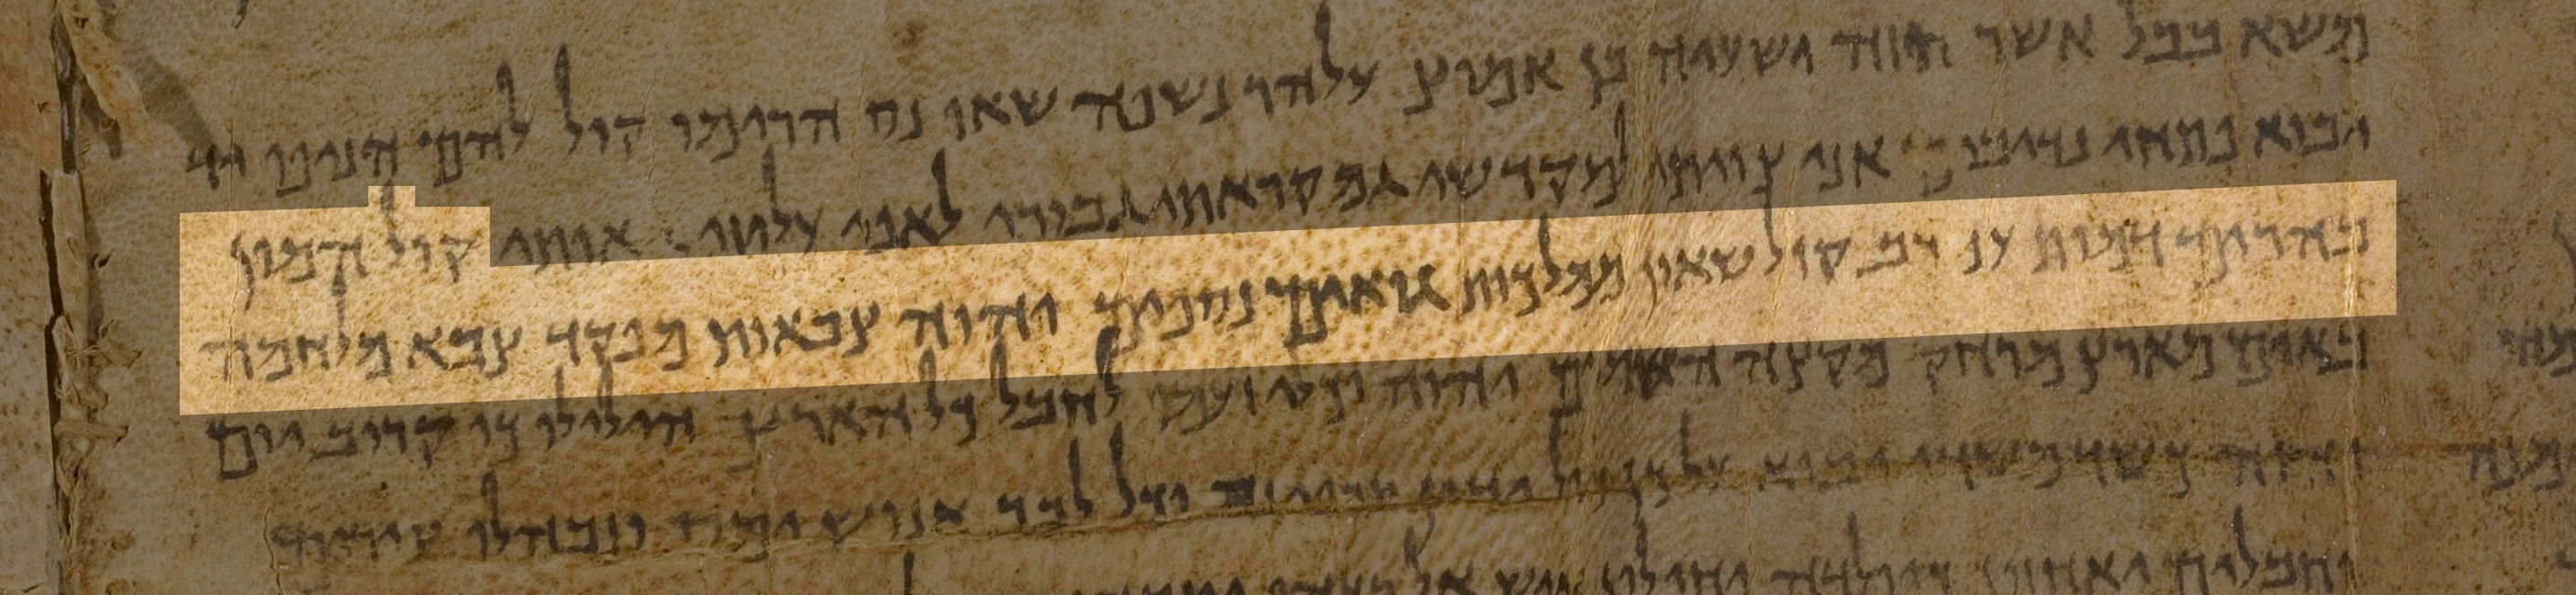 משא בבל אשר חזה ישעיה בן אמוץ על הר נשפה שאו נס הרימו קול להם הניפו יד
יבוא פתחי נדיבים אני צויתי למקדשי גם קראתי גבורי לאפי עליזי גאותי קול המון
בהרים דמות עם רב קול שאון ממלכות גואים נאספים יהוה צבאות מפקד צבא מלחמה
באים מארץ מרחק מקצה השמים יהוה וכלי זעמו לחבל כל הארץ הילילו כי קרוב יום
יהוה כשד משדי יבוא על כן כול ידים תרפינה וכל לבב אנוש ימס ונבהלו צירים
וחבלים יאחזון כיולדה יחילון איש אל רעהו